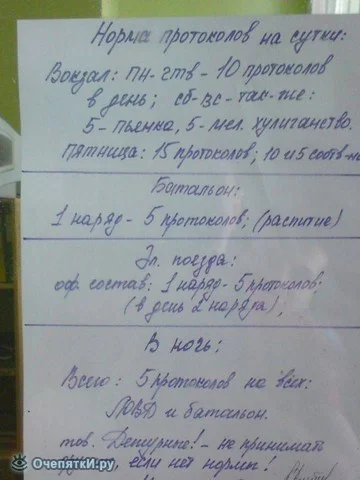 Норма протоколов на сутки:
Вокзал: пн-чтв - 10 протоколов
в день; сб-вс - так-же:
5 - пьянка, 5 - мел. хулиганство.
Пятница: 15 протоколов; 10 и 5 соотв-но
Батальон:
1 наряд - 5 протоколов; (распитие)
Эл. поезда:
оф. состав: 1 наряд - 5 протоколов;
(в день 2 наряда);
В ночь:
Всего: 5 протоколов на всех:
ЛОВД и батальон.
тов. Дежурные! - не принимать
если нет нормы!
ОчепяткИ.ру